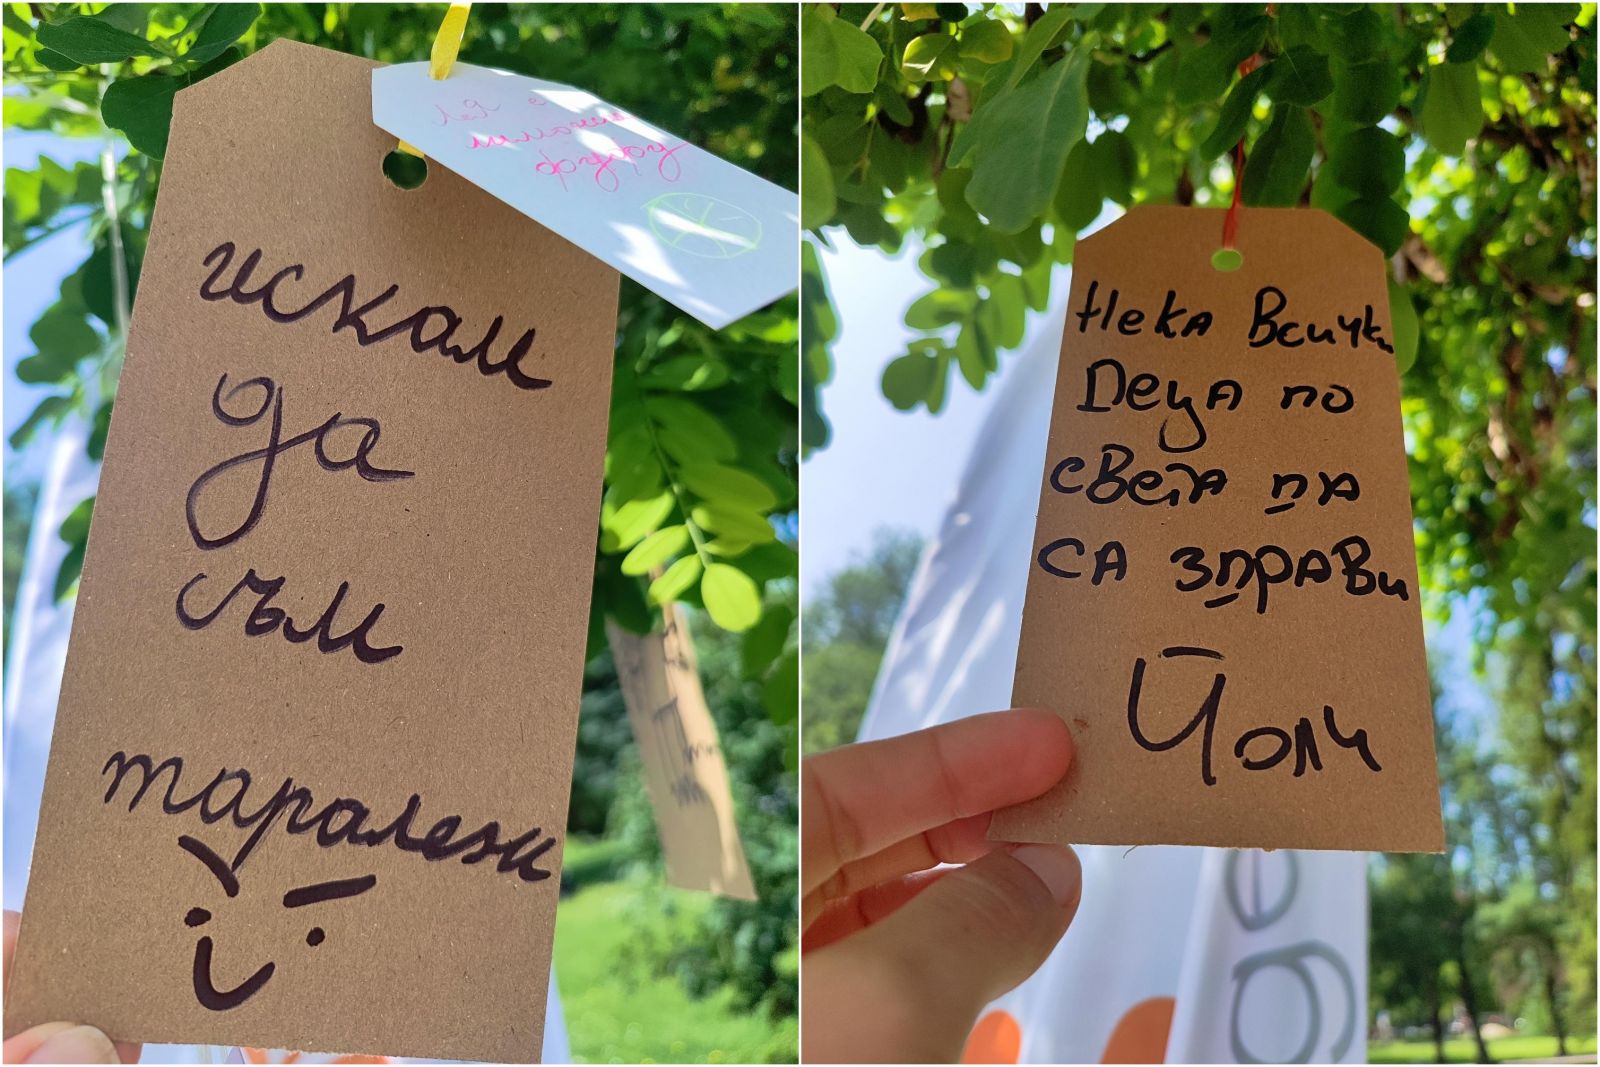 искам
да
съм
таралеж
Лея е
лимонена
фурур
Нека Всички
Деца по
света да
са здрави
Йоли
eg